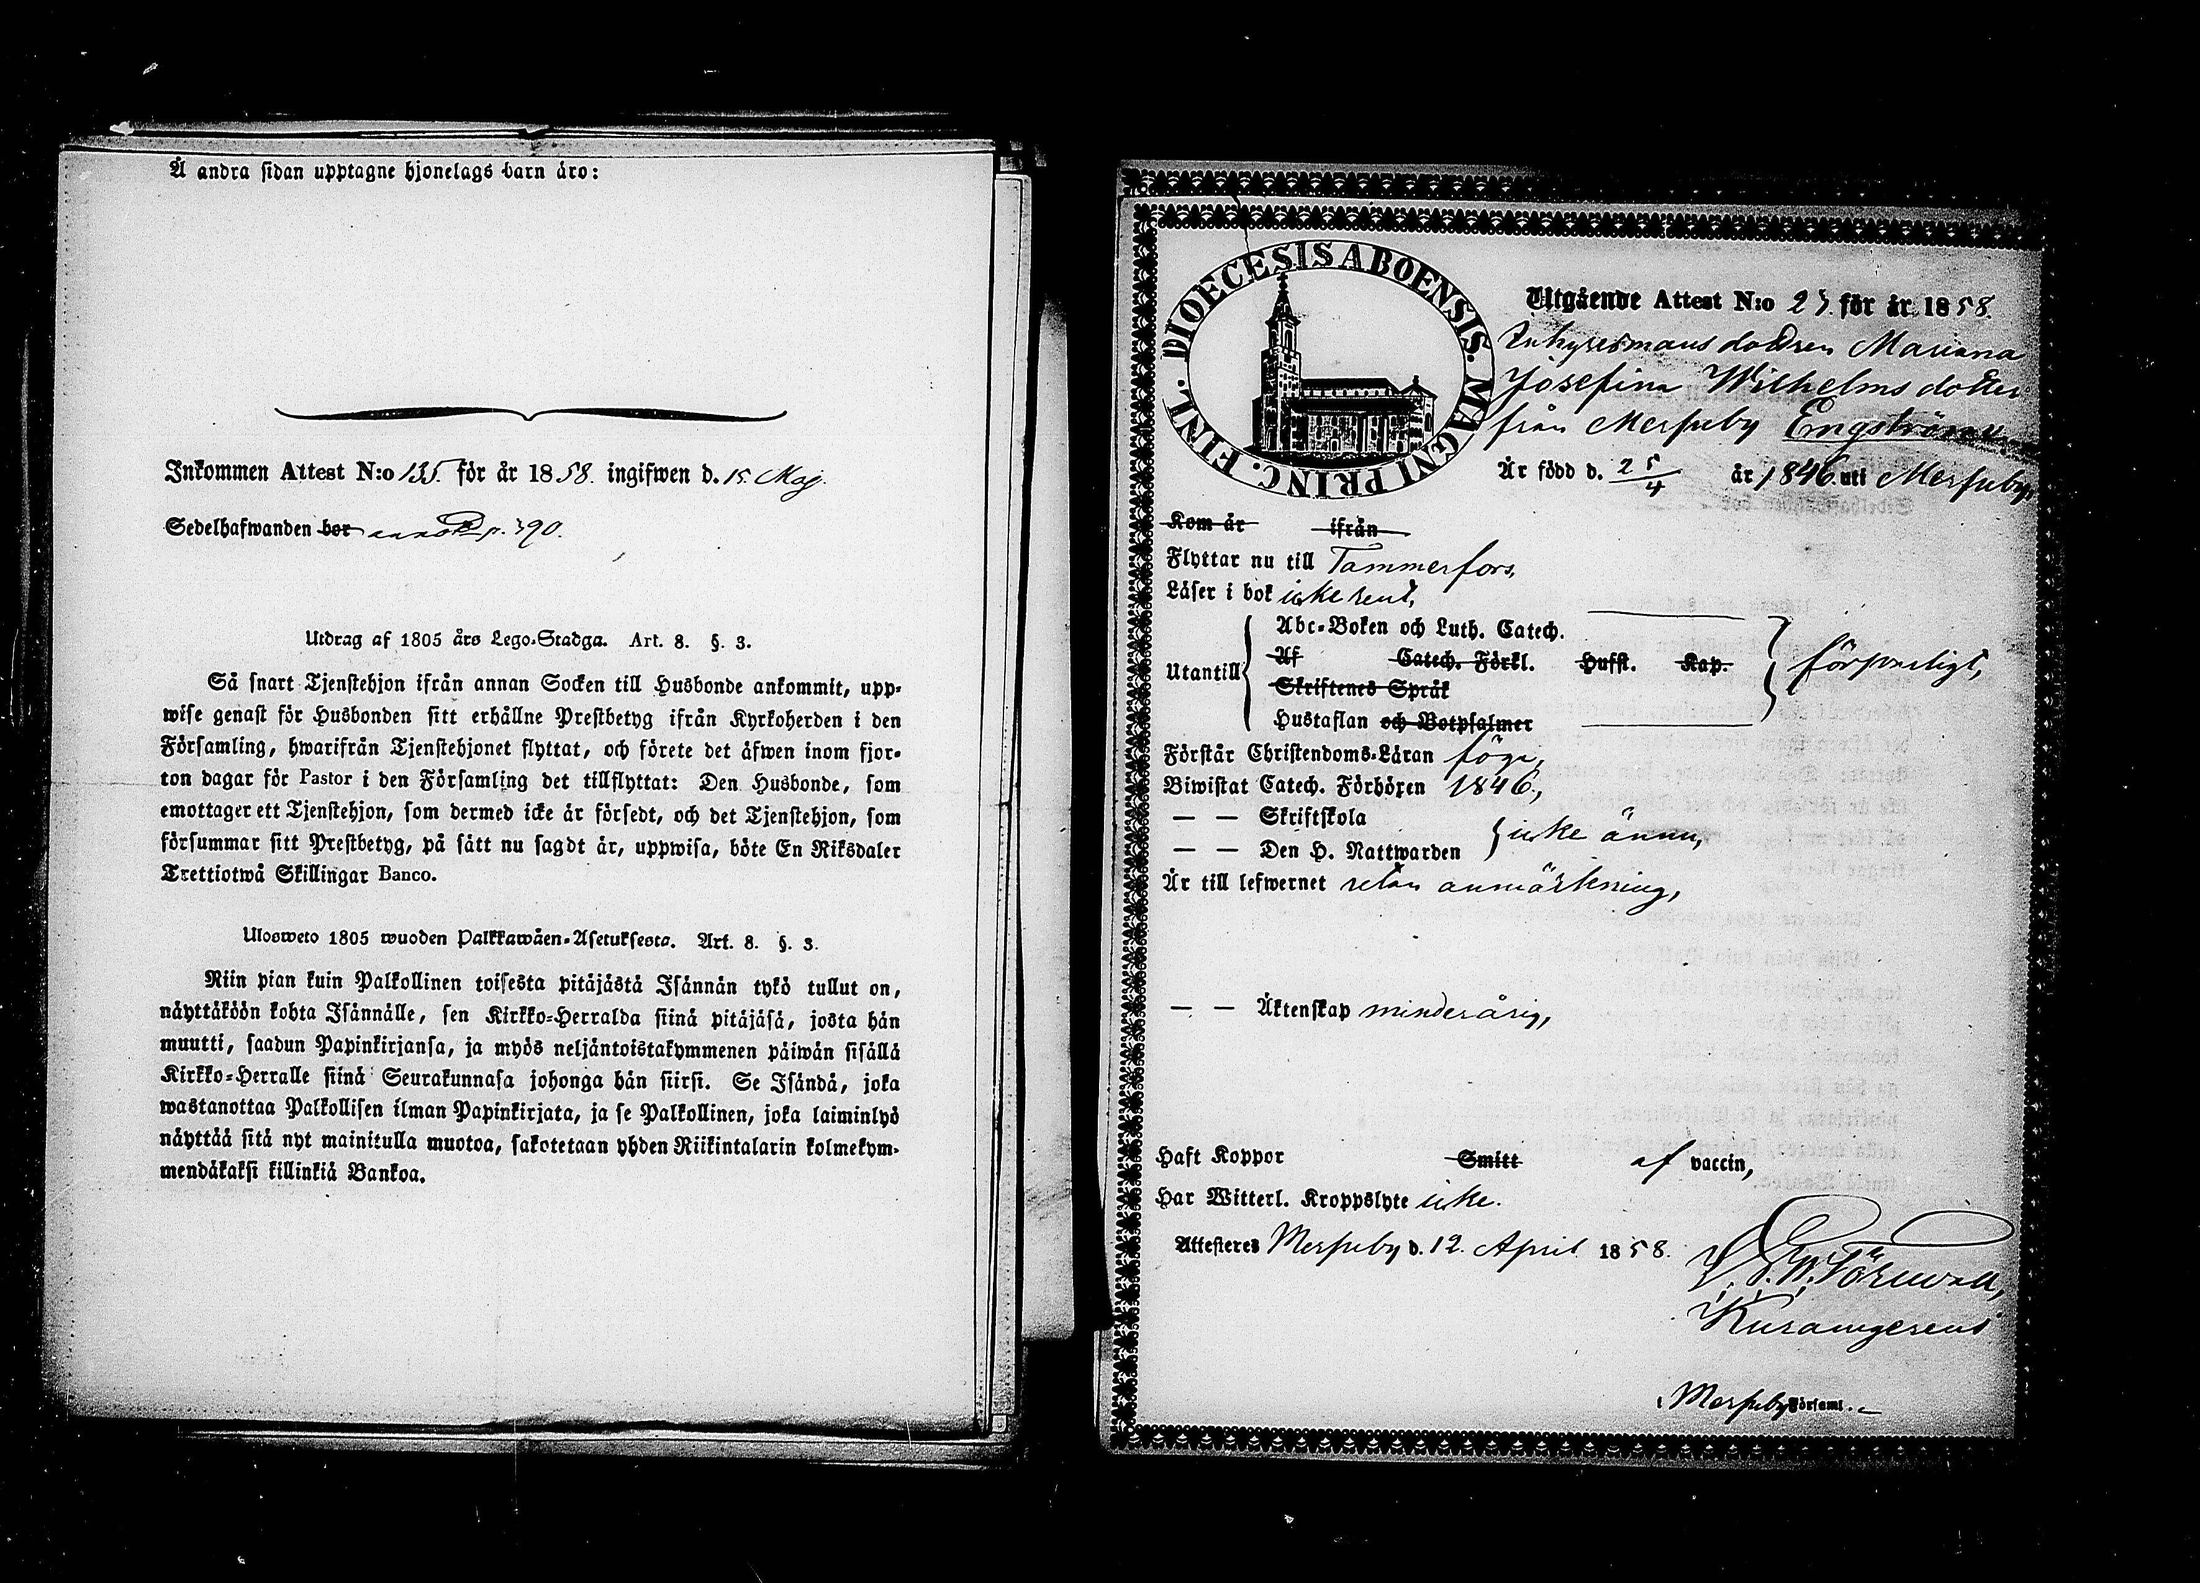 Å andra sidan upptagne hjonelags barn äro:
Inkommen Attest N:o 135. för år 1858. ingifwen d. 15. Maj.
Sedelhafwanden bor p. 390.
Utdrag af 1805 års Lego-Stadga. Art. 8. §. 3.
Så snart Tjenstehjon ifrån annan Socken till Husbonde ankommit, upp-
wise genast för Husbonden sitt erhållne Prestbetyg ifrån Kyrkoherden i den
Församling, hwarifrån Tjenstehjonet flyttat, och förete det äfwen inom fjor-
ton dagar för Pastor i den Församling det tillflyttat: Den Husbonde, som
emottager ett Tjenstehjon, som dermed icke är försedt, och det Tjenstehjon, som
försummar sitt Prestbetyg, på sätt nu sagdt är, uppwisa, böte En Riksdaler
Trettiotwå Skillingar Banco.
Ulosweto 1805 wuoden Palkkawäen-Asetuksesta. Art. 8. §. 3.
Niin pian kuin Palkollinen toisesta pitäjästä Isännän tykö tullut on,
näyttäköön kohta Isännälle, sen Kirkko-Herralda siinä pitäjäsä, josta hän
muutti, saadun Papinkirjansa, ja myös neljäntoistakymmenen päiwän sisällä
Kirkko-Herralle siinä Seurakunnasa johonga hän siirsi. Se Isändä, joka
wastanottaa Palkollisen ilman Papinkirjata, ja se Palkollinen, joka laiminlyö
näyttää sitä nyt mainitulla muotoa, sakotetaan yhden Riikintalarin kolmekym-
mendäkaksi killinkiä Bankoa.
DIOECESIS ABOENSIS. MAGNI PRINC. FINL.
Utgående Attest N:o 23. för år 1858.
Inhysesmans dottren Mariana
Josefina Wilhelms dotter
från Merpuby Engström
Är född d. 25/4 år 1846. uti Merpuby,
Kom år ifrån
Flyttar nu till Tammerfors,
Läser i bok icke rent,
Utantill
Abc-Boken och Luth. Catech.
Af Catech. Förkl. Hufst. Kap. försvarligt,
Skriftenes Språk
Hustaflan och Botpsalmer
Förstår Christendoms-Läran föga,
Biwistat Catech. Förhören 1846,
— — Skriftskola
— — Den H. Nattwarden icke ännu,
Är till lefwernet utan anmärkning,
— — Äktenskap minderårig,
Haft Koppor Smitt af vaccin,
Har Witterl. Kroppslyte icke.
Attesteras Merpuby d. 12. April 1858.
Merpuby Församl.